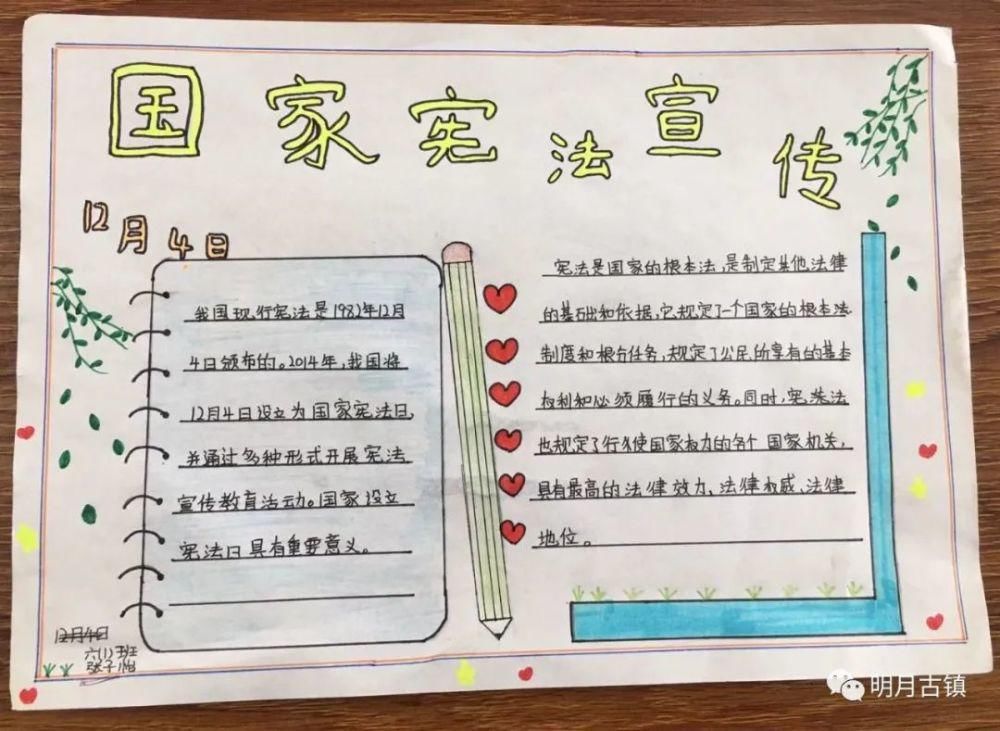 国家宪法宣传
12月4日
我国现行宪法是1982年12月
4日颁布的。2014年,我国将
12月4日设立为国家宪法日,
并通过多种形式开展宪法
宣传教育活动。国家设立
宪法日具有重要意义。
宪法是国家的根本法,是制定其他法律
的基础和依据,它规定了一个国家的根本法
制度和根夲任务,规定了公民所享有的基本
权利和必须履行的义务。同时,宪法法
也规定了行使国家权力的各个国家机关,
具有最高的法律效力、法律权威、法律
地位。
12月4日
六(1)班
张子怡
明月古镇